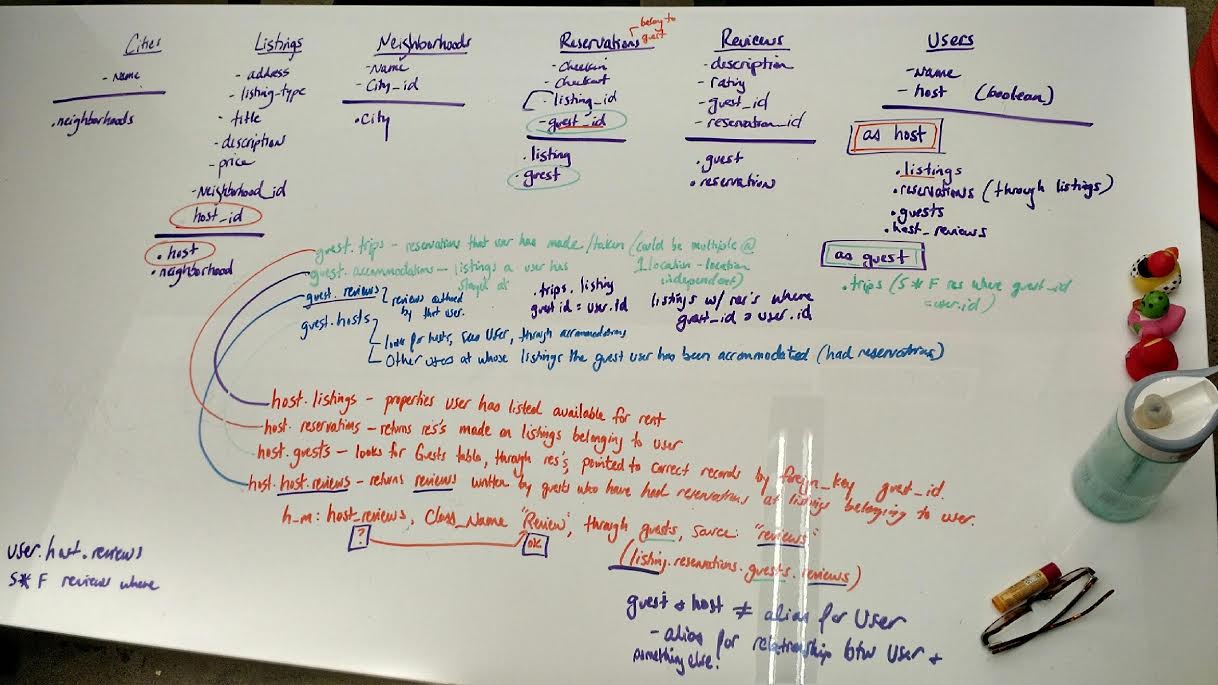 Cities
- Name
.neighborhoods
Listings
- address
- listing-type
- title
- description
- price
- Neighborhood_id
host_id
. host
• neighborhood
Neighborhoods
- Name
- City_id
• City
Reservations
belong to
guest
- Checkin
- Checkout
- listing_id
- guest_id
. listing
. guest
Reviews
- description
- rating
- guest_id
- reservation_id
. guest
• reservation
Users
- Name
- host (boolean)
as host
. listings
• reservations (through listings)
• guests
• host_reviews
as guest
. trips (S * F res where guest_id
= user.id)
guest.trips - reservations that user has made/taken (could be multiple @
1 location - location
independent)
guest.accommodations - listings a user has
stayed at
. trips. listing
guest id = user.id
listings w/ res's where
guest_id = user.id
guest.reviews reviews authored
by that user.
guest.hosts
looks for hosts, sees User, through accommodations
Other users at whose listings the guest user has been accommodated (had reservations)
host.listings - properties user has listed available for rent
host.reservations - returns res's made on listings belonging to user
host.guests - looks for Guests table, through res's, pointed to correct records by foreign_key guest_id.
host.host.reviews - returns reviews written by guests who have had reservations at listings belonging to user.
h_m: host_reviews, Class_Name "Review", through guests, source: "reviews"
? ok
(listing.reservations.guests.reviews)
user.host.reviews
S * F reviews where
guest + host ≠ alias for User
- alias for relationship btw User +
something else!